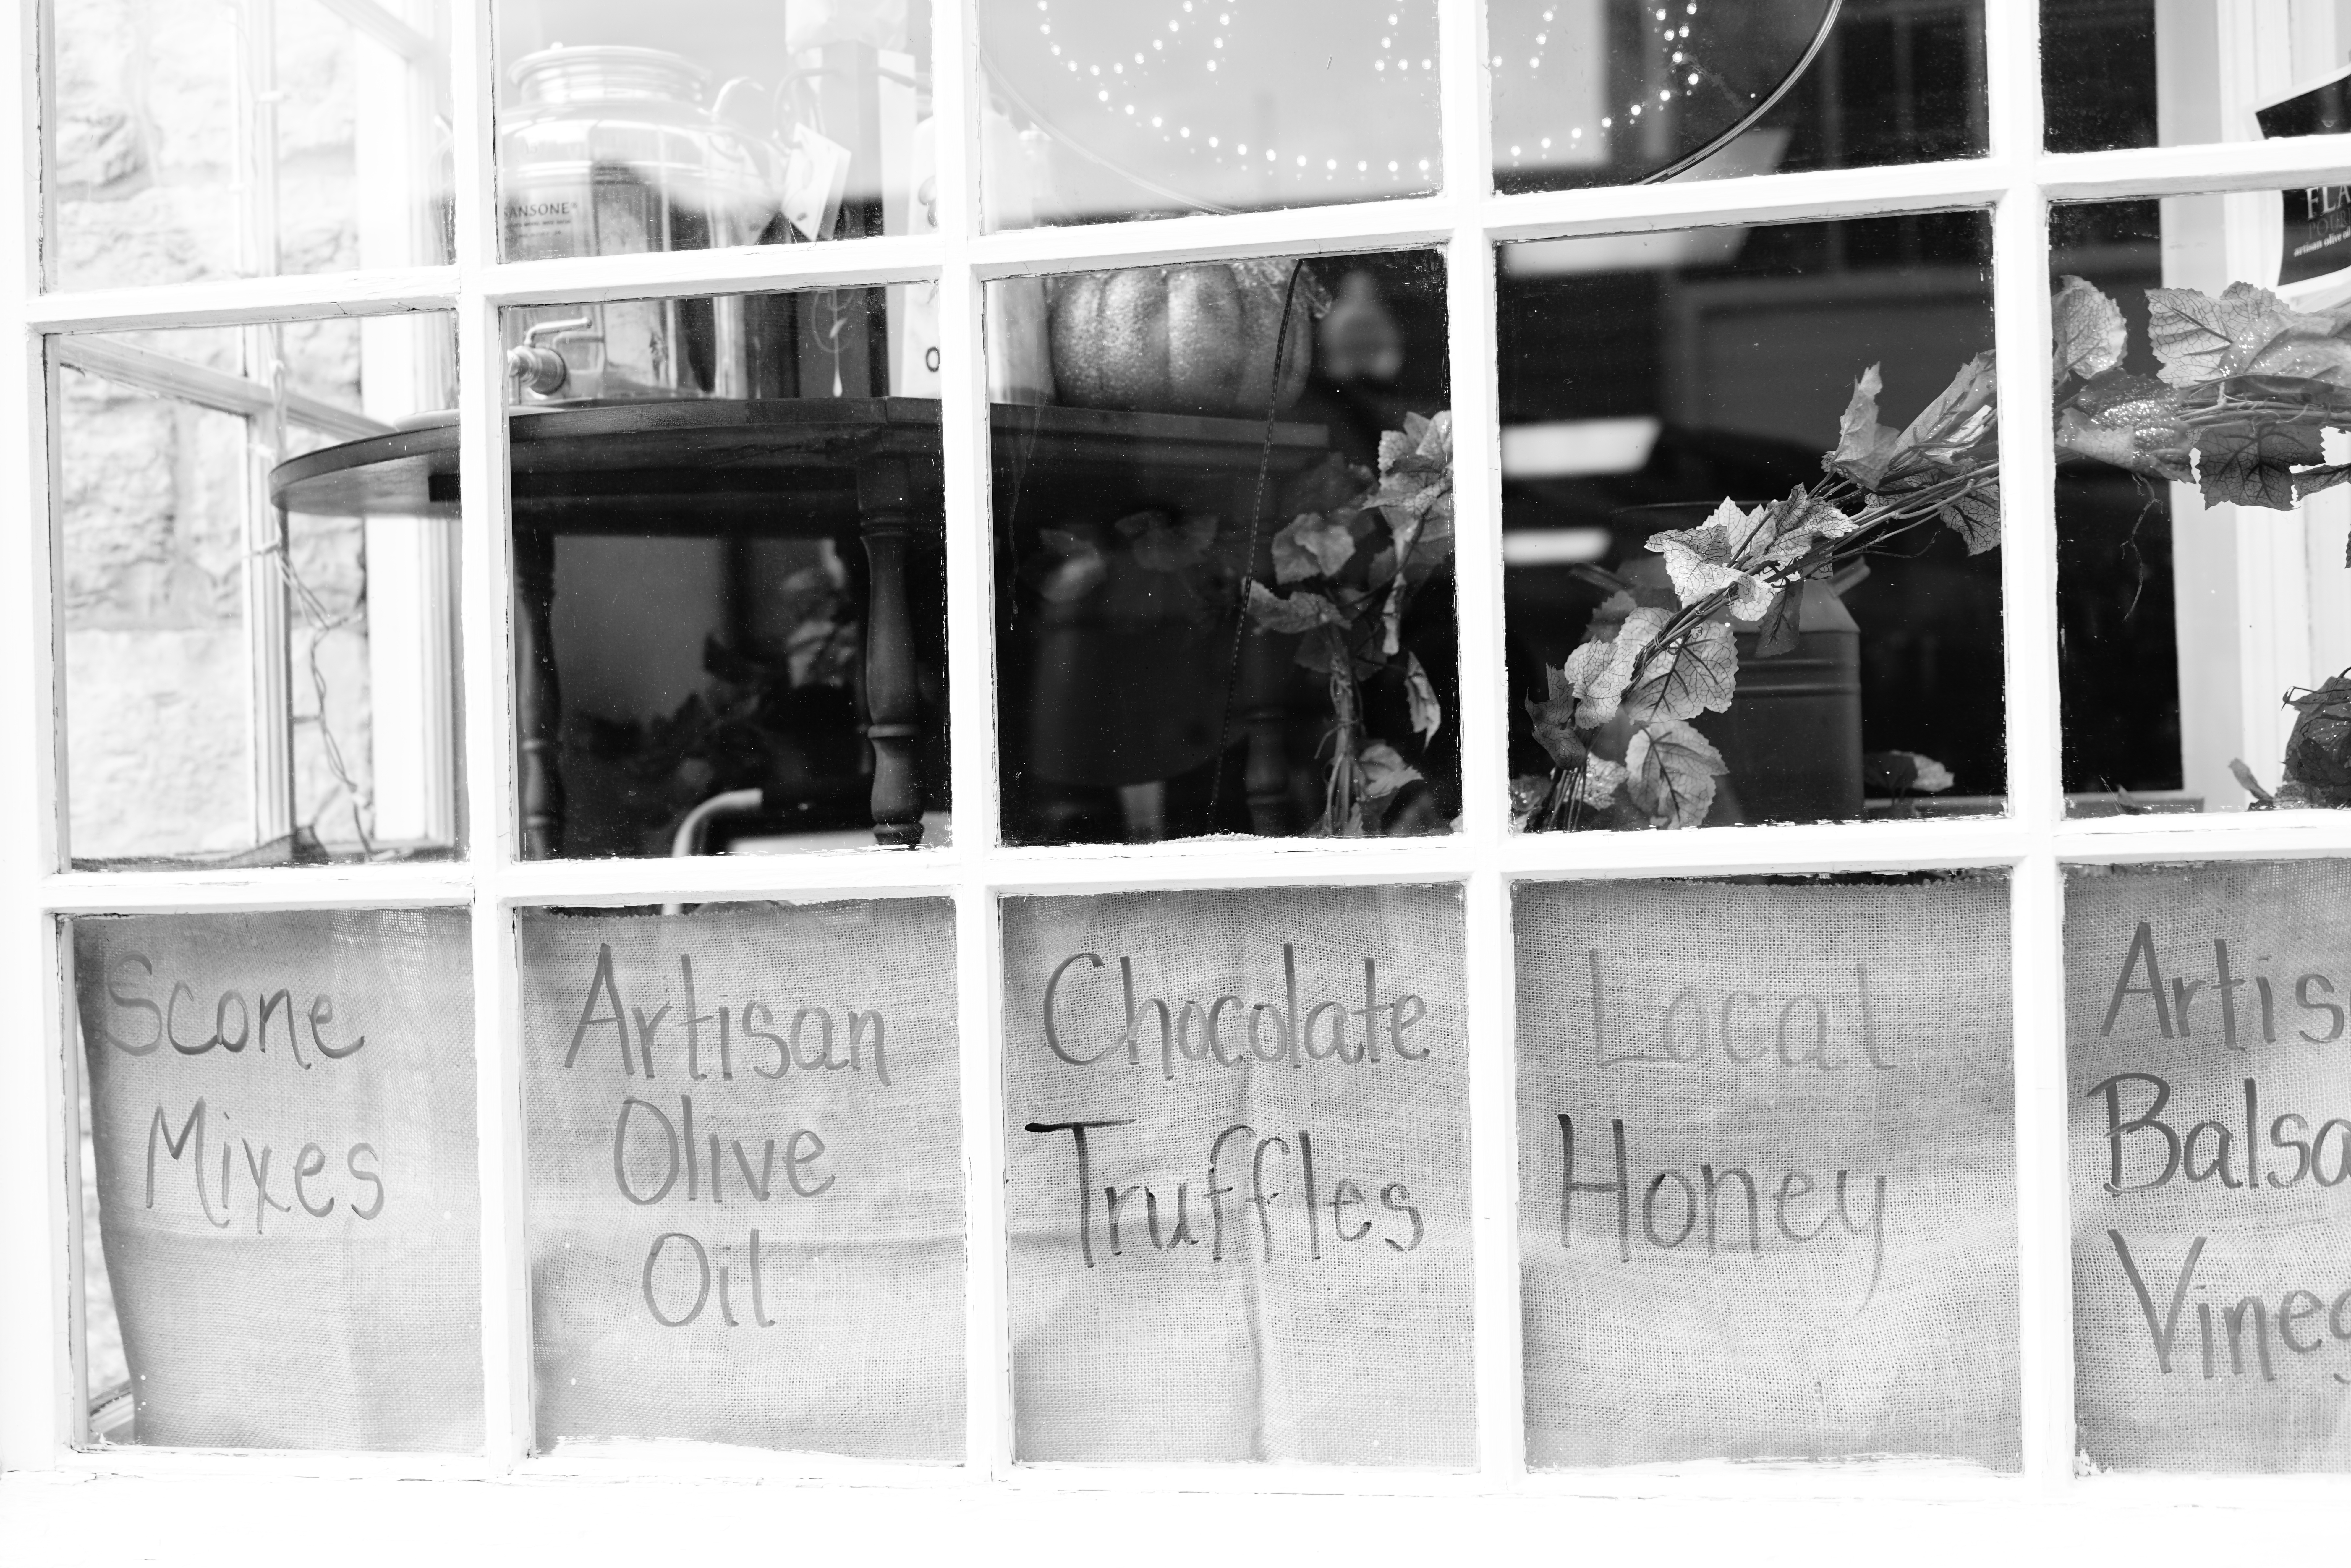 SANSONE®
FLA
artisan olive oi
O
Scone
Mixes
Artisan
Olive
Oil
Chocolate
Truffles
Local
Honey
Artis
Balsa
Vineg